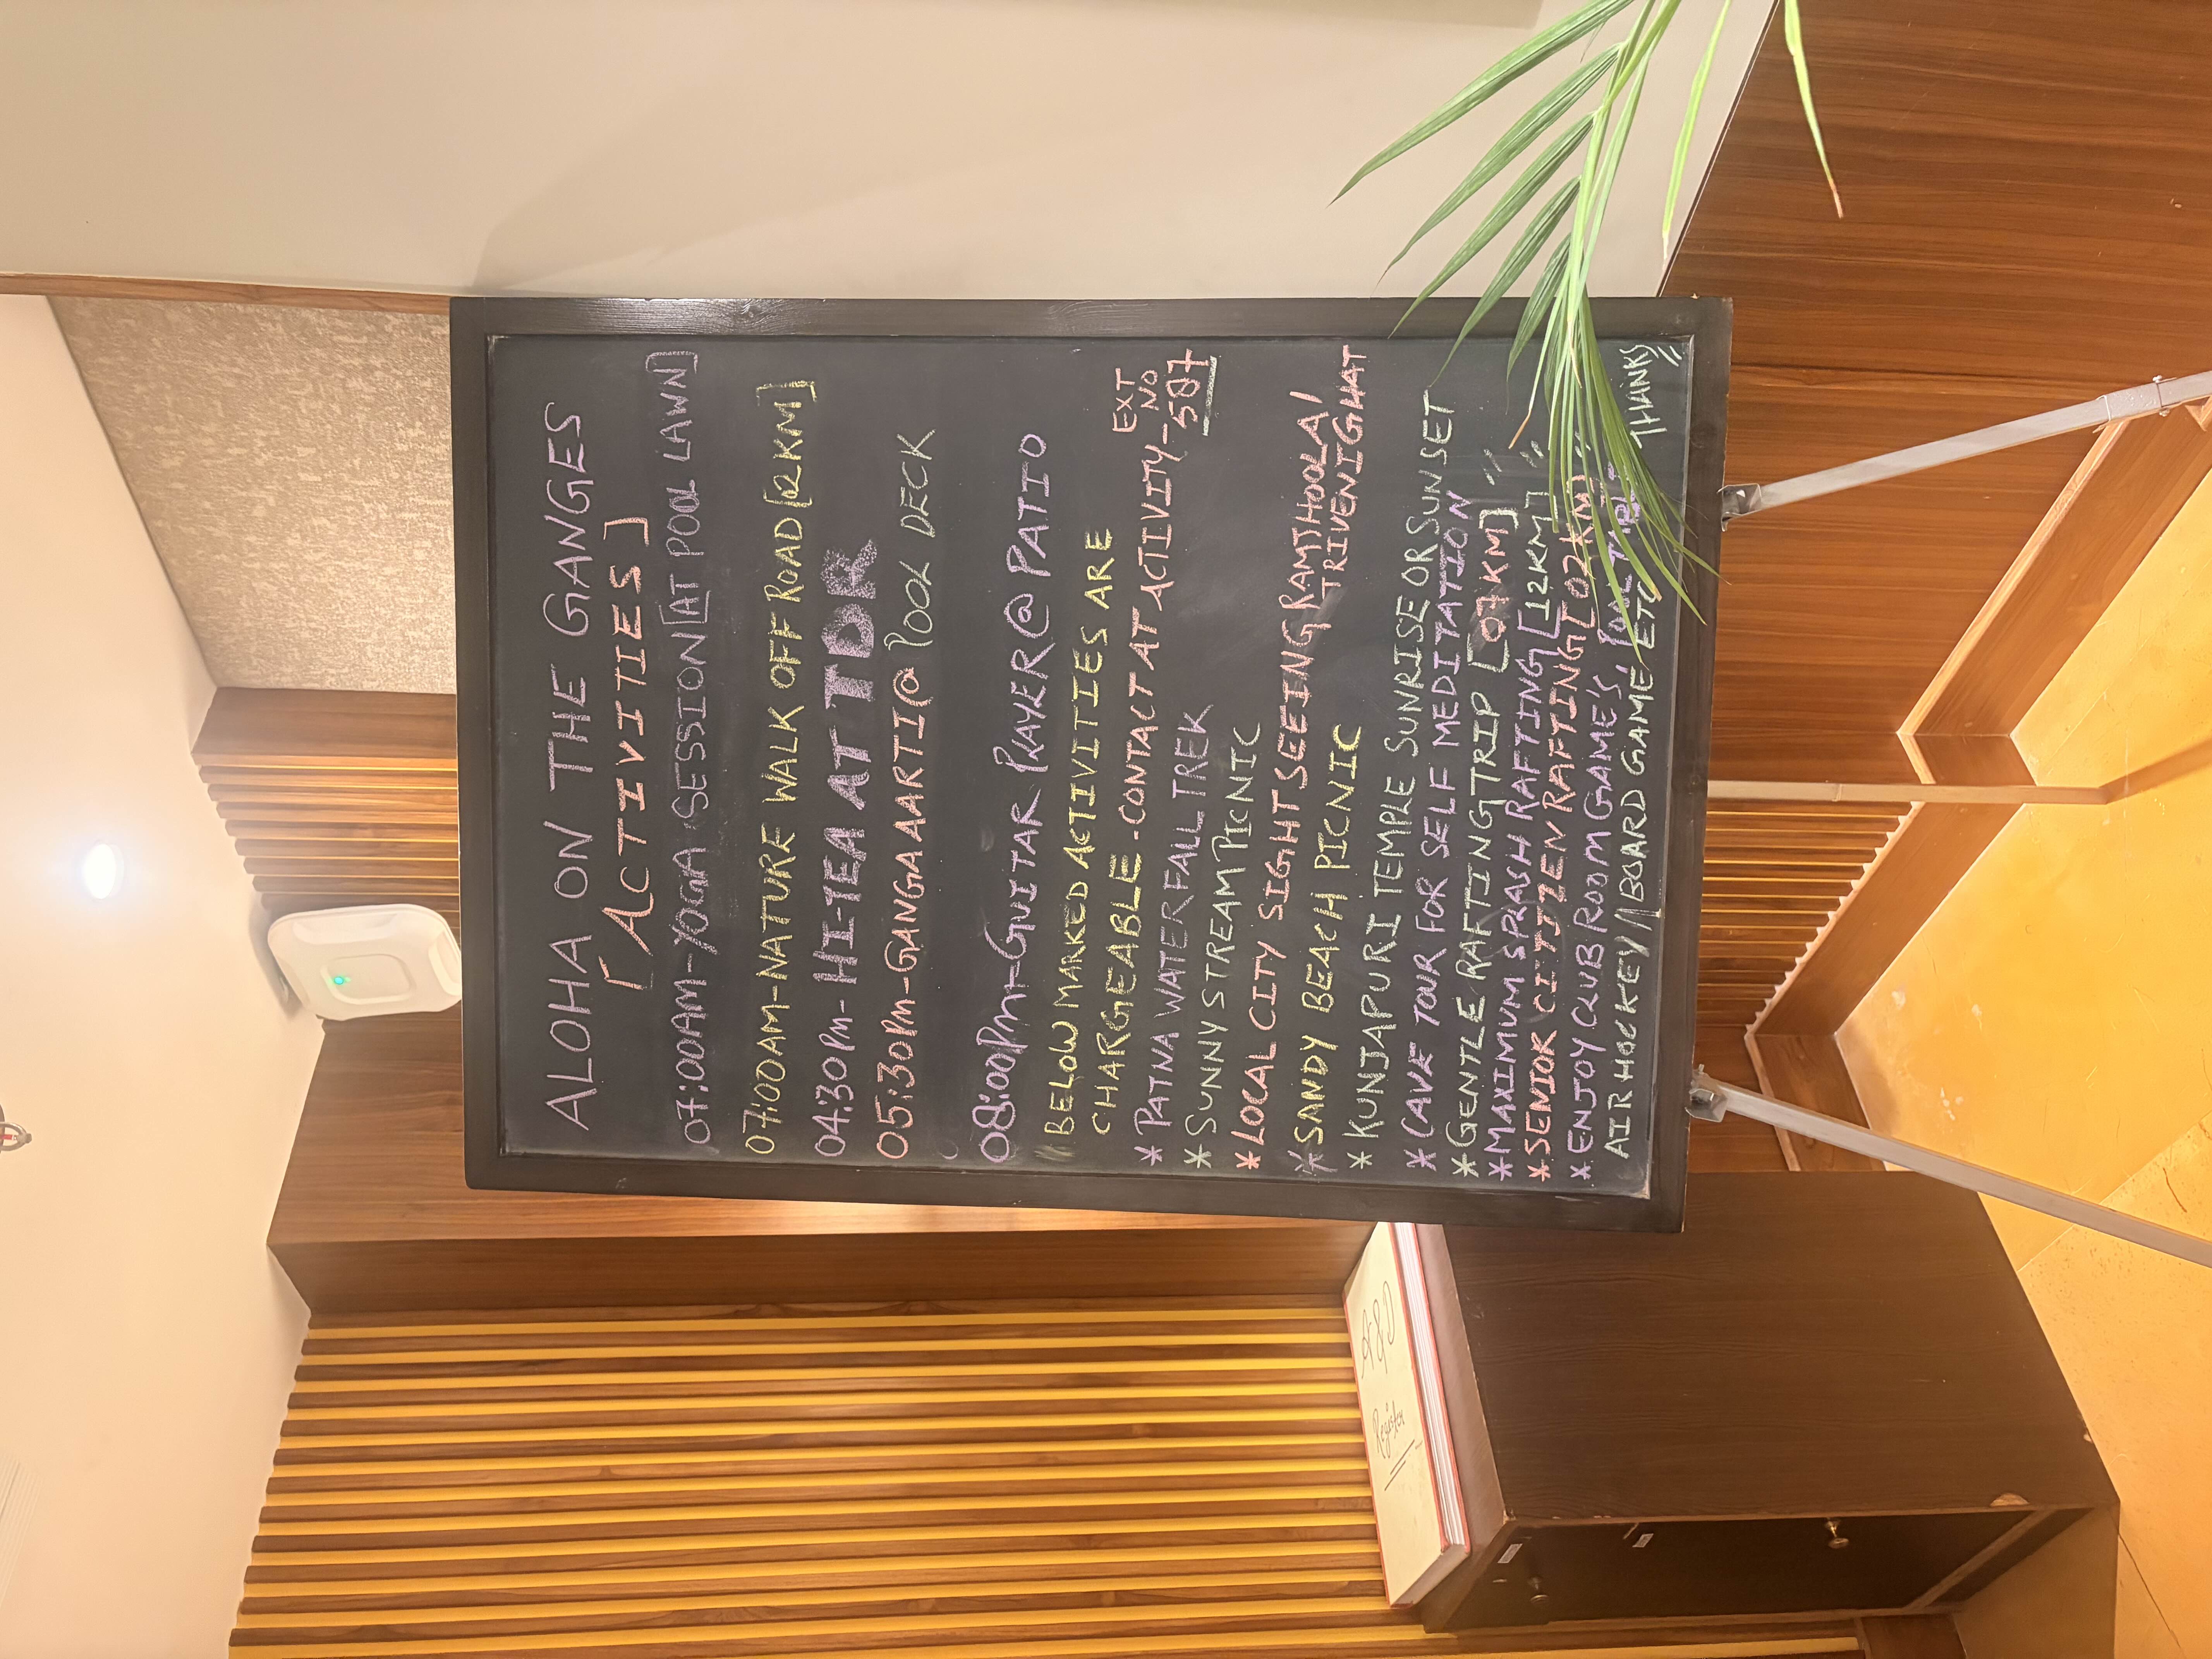 ALOHA ON THE GANGES
[ACTIVITIES]
07:00AM-YOGA SESSION[AT POOL LAWN]
07:00AM-NATURE WALK OFF ROAD[2KM]
04:30PM-HI-TEA AT TDR
05:30PM-GANGA AARTI@ POOL DECK
08:00PM-GUITAR PLAYER@ PATIO
BELOW MARKED ACTIVITIES ARE
CHARGEABLE-CONTACT AT ACTIVITY-EXT NO 587
*PATNA WATER FALL TREK
*SUNNY STREAM PICNIC
*LOCAL CITY SIGHT SEEING RAMJHOOLA/
TRIVENIGHAT
*SANDY BEACH PICNIC
*KUNJAPURI TEMPLE SUNRISE OR SUNSET
*CAVE TOUR FOR SELF MEDITATION
*GENTLE RAFTING TRIP [07KM]"
*MAXIMUM SPLASH RAFTING[12KM]"
*SENIOR CITIZEN RAFTING[02KM]"
*ENJOY CLUB ROOM GAME'S POOL TABLE
AIR HOCKEY/BOARD GAME ETC
THANKS
C&F
Register